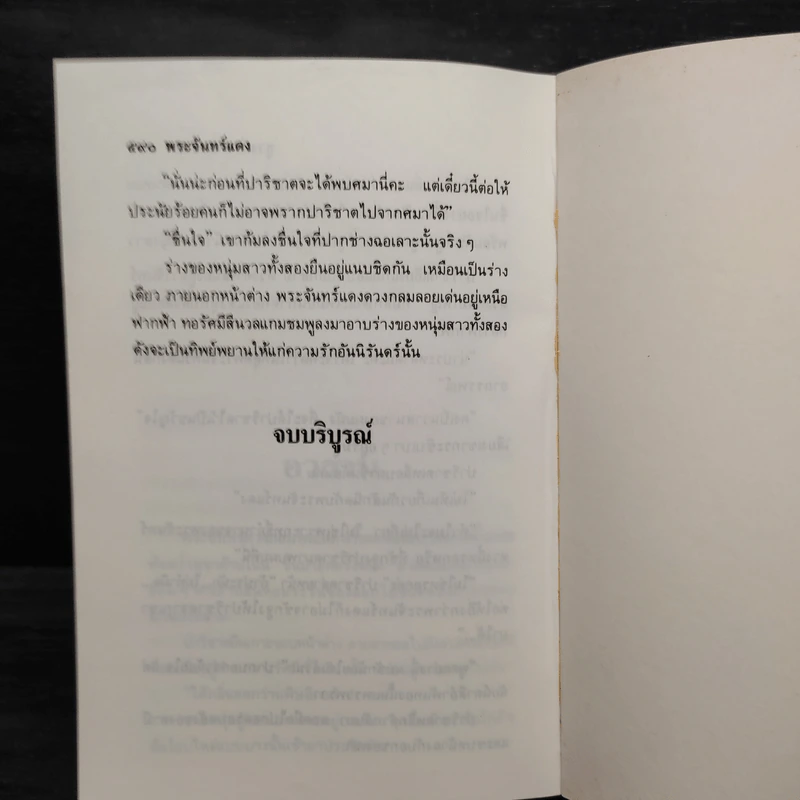 ๕๙๐ พระจันทร์แดง
"นั่นน่ะก่อนที่ปาริชาตจะได้พบศมานี่คะ แต่เดี๋ยวนี้ต่อให้
ประนัยร้อยคนก็ไม่อาจพรากปาริชาตไปจากศมาได้"
"ชื่นใจ" เขาก้มลงชื่นใจที่ปากช่างฉอเลาะนั้นจริง ๆ
ร่างของหนุ่มสาวทั้งสองยืนอยู่แนบชิดกัน เหมือนเป็นร่าง
เดียว ภายนอกหน้าต่าง พระจันทร์แดงดวงกลมลอยเด่นอยู่เหนือ
ฟากฟ้า ทอรัศมีสีนวลแกมชมพูลงมาอาบร่างของหนุ่มสาวทั้งสอง
ดังจะเป็นทิพย์พยานให้แก่ความรักอันนิรันดร์นั้น
จบบริบูรณ์